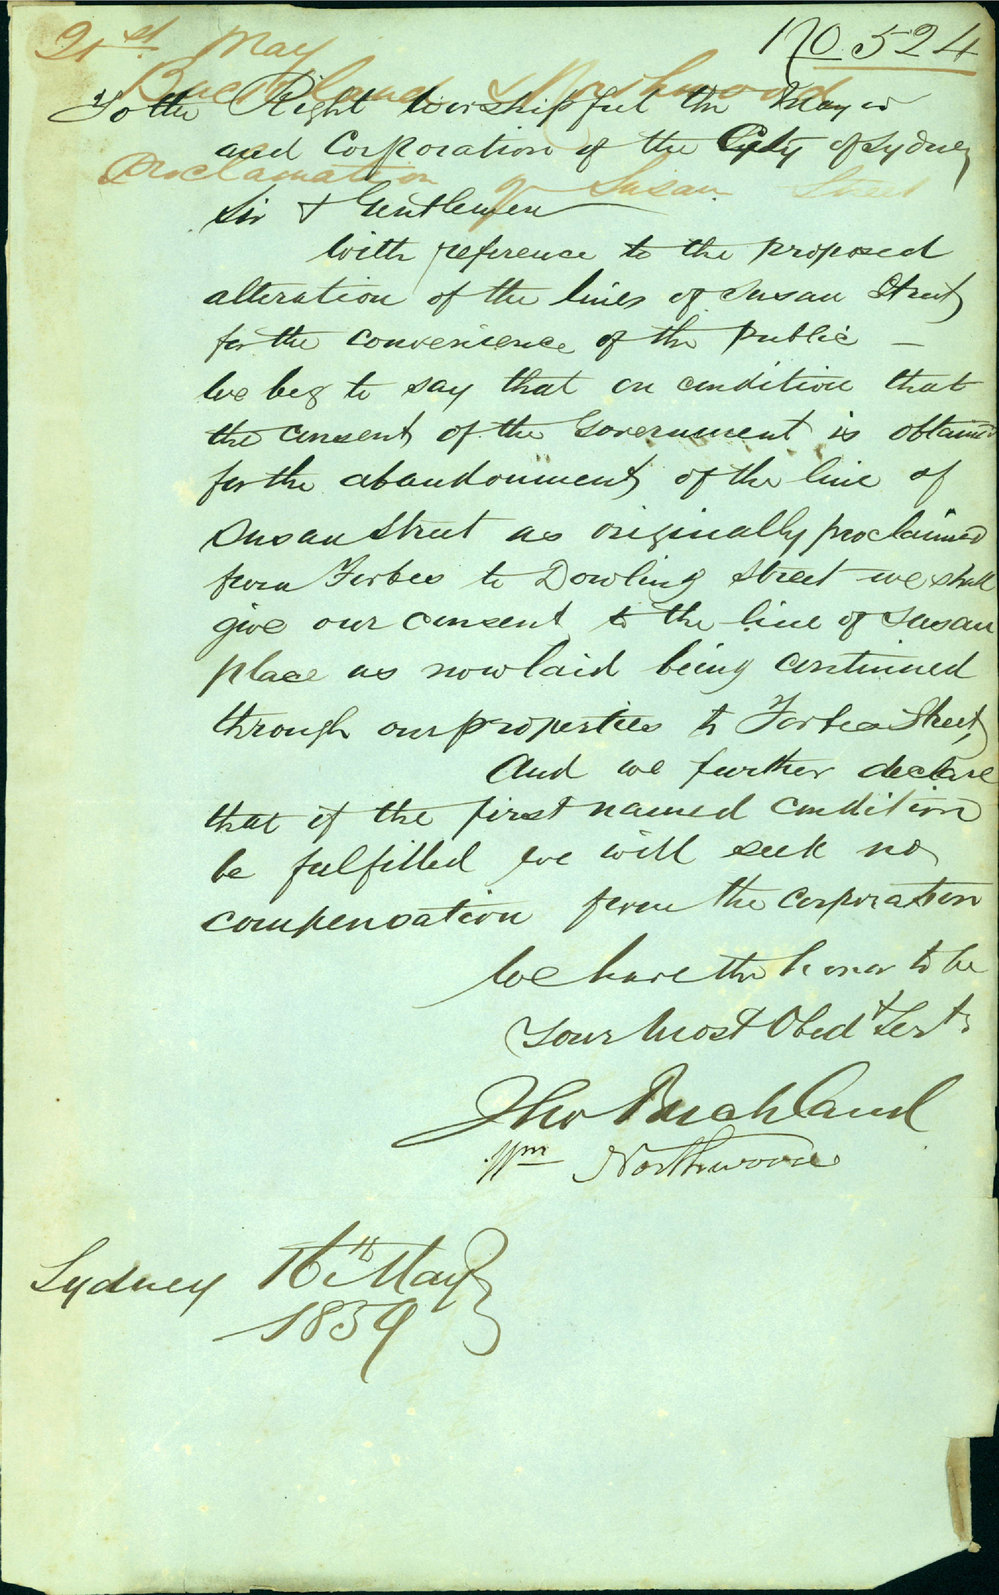 21st May
No. 524
Buckland & Northwood
To the Right Worshipful the Mayor
and Corporation of the City of Sydney
Proclamation of Susan Street
Sir & Gentlemen
With reference to the proposed
alteration of the lines of Susan Street
for the convenience of the public —
We beg to say that on condition that
the consent of the Government is obtained
for the abandonment of the line of
Susan Street as originally proclaimed
from Forbes to Dowling Street we shall
give our consent to the line of Susan
place as now laid being continued
through our properties to Forbes Street,
And we further declare
that if the first named condition
be fulfilled we will seek no
compensation from the corporation
We have the honor to be
Your Most Obedt Servts
Thos Buckland
Wm Northwood
Sydney 16th May
1859